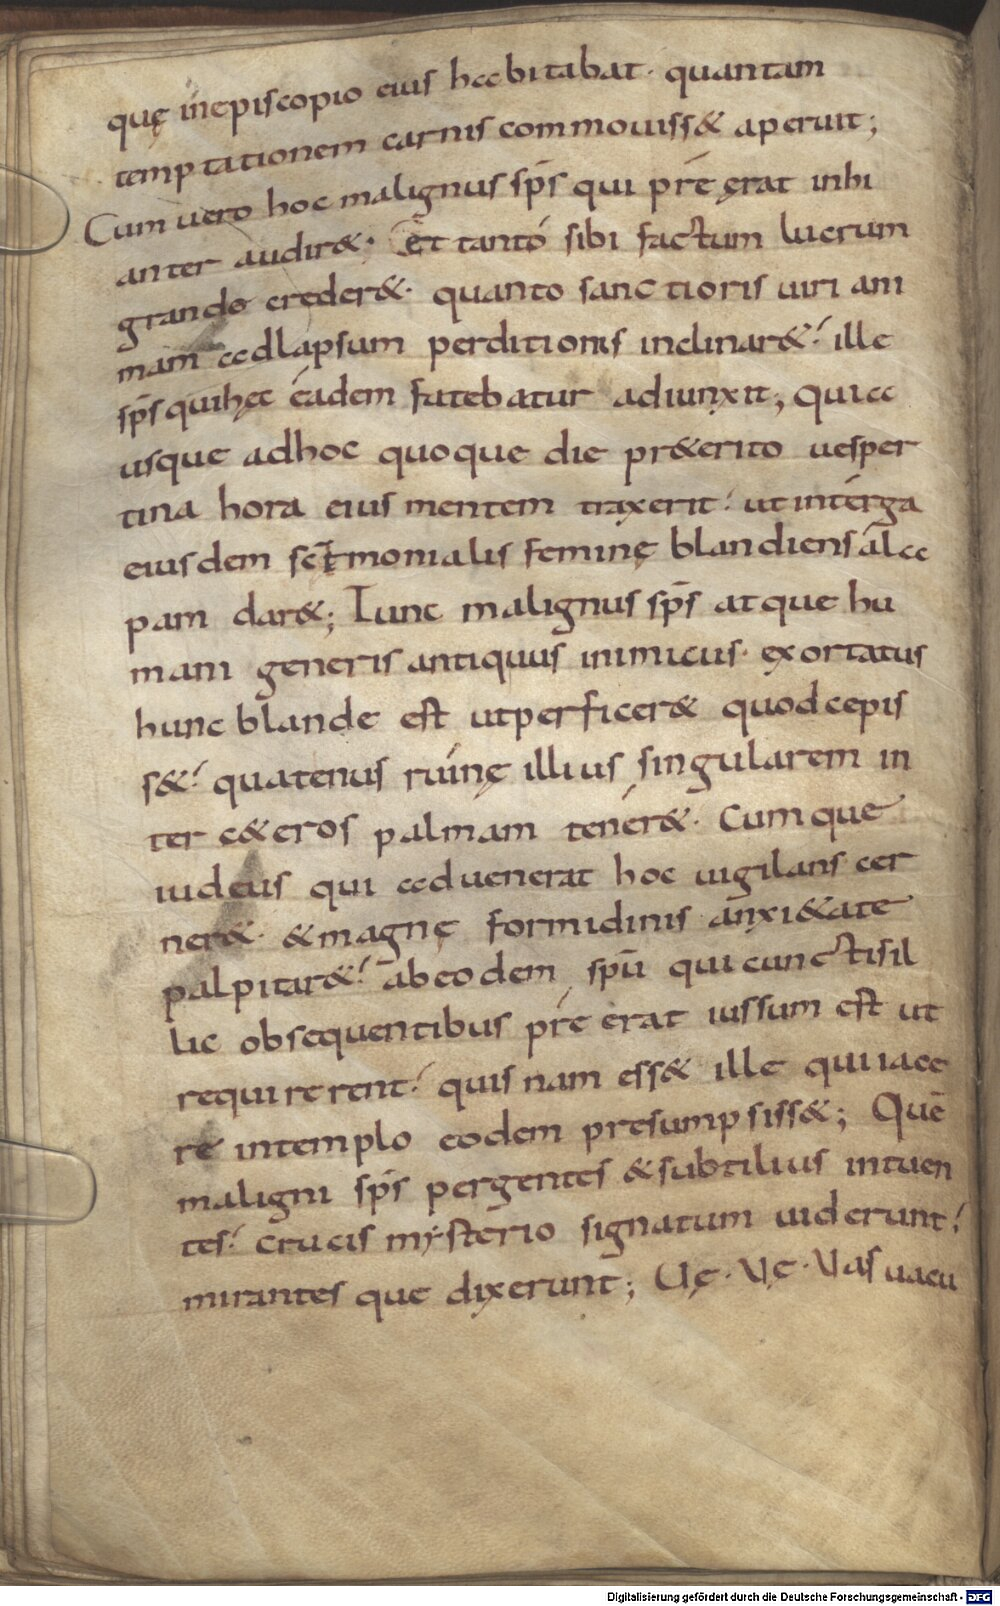 quę inepiscopio eius habitabat· quantam
temptationem carnis commouiss& aperuit;
Cum uero hoc malignus sp̄s qui pré ęrat inhi
anter audir&· Et tantó sibi factum lucrum
grande creder&· quanto sanctioris uiri ani
mam adlapsum perditionis inclinar&· ille
sp̄s quihęc éadem fatebatur adiunxit; Quia
usque adhoc quoque die pr&erito uesper
tina hora eius mentem traxerit· ut intérga
eiusdem sc̄timonialis feminę blandiens ála
pam dar&; Tunc malignus sp̄s atque hu
mani generis antiquus inimicus· exortatus
hunc blande est utperficer& quodcepis
s&· quatenus ruinę illius singularem in
ter c&eros palmam tenér&· Cumque
iudeus qui aduenerat hoc uigilans cer
ner&· & magnę formidinis anxi&ate
palpitar&· abeodem sp̄u qui cunctisil
lic obsequentibus pré erat iussum est ut
requirerent· quisnam ess& ille qui iace
re intemplo eodem presumpsiss&; Quē
maligni sp̄s pergentes &subtilius intuen
tes· crucis mysterio signatum uiderunt·
mirantes que dixerunt; Uę· Vę· Vas uacu
Digitalisierung gefördert durch die Deutsche Forschungsgemeinschaft - DFG